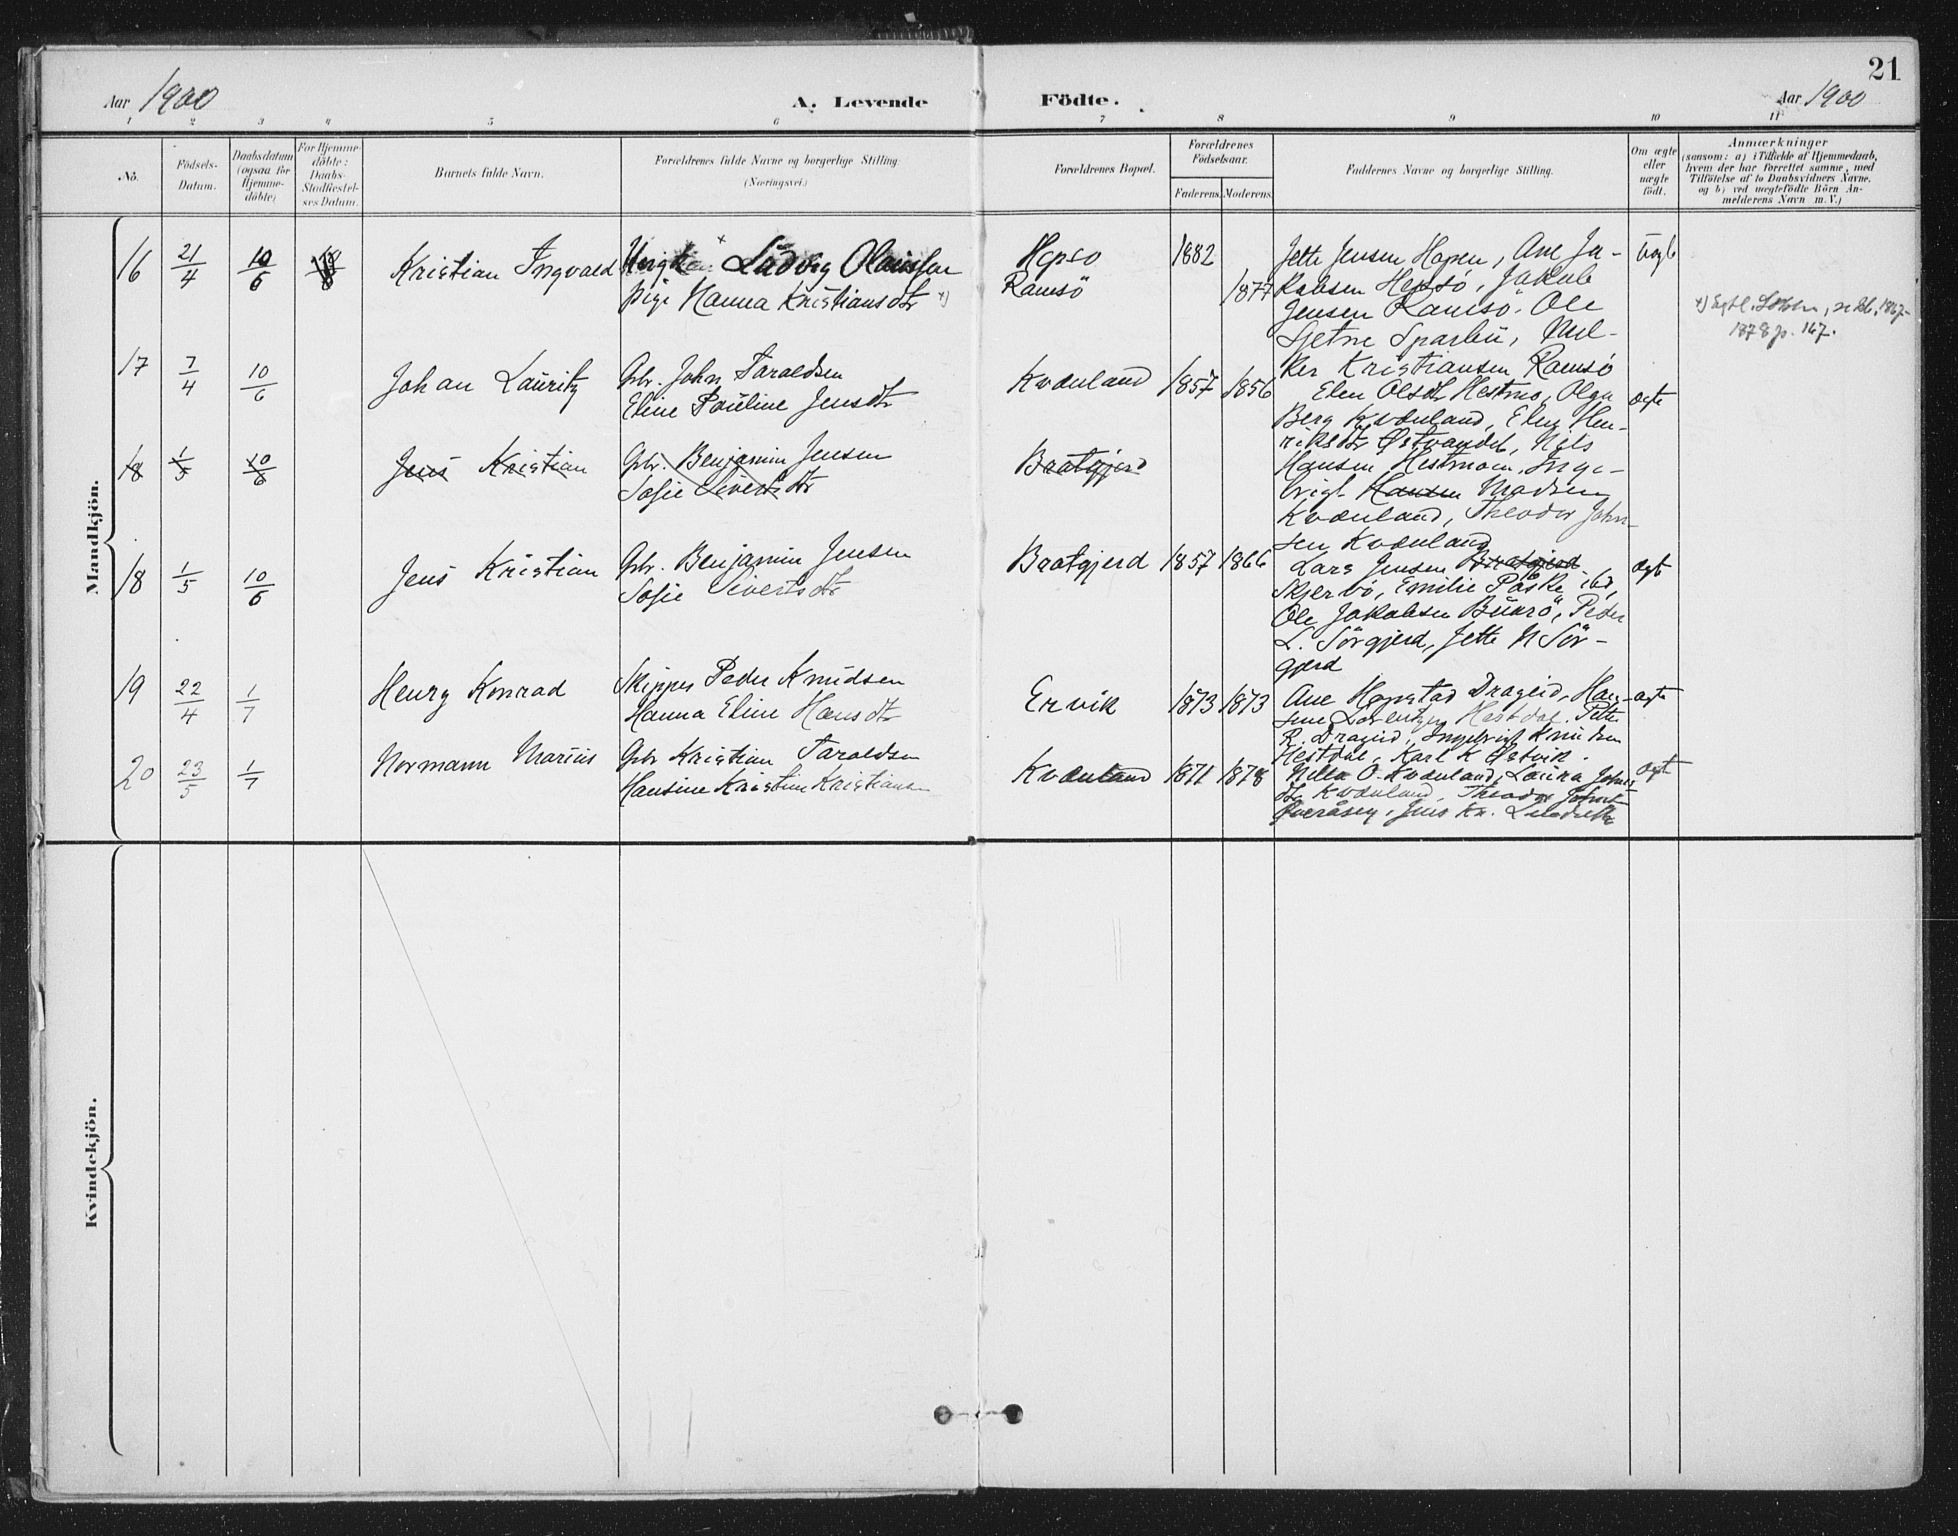 21
Aar 1900
A. Levende
Födte.
Aar 1900
1 2 3 4 5 6 7 8 9 10 11
No.
Födsels-
Datum.
Daabsdatum
(ogsaa for
Hjemme-
döbte)
For Hjemme-
döbte:
Daabs-
Stadfæstel-
ses Datum.
Barnets fulde Navn.
Forældrenes fulde Navne og borgerlige Stilling.
(Næringsvei.)
Forældrenes Bopæl.
Forældrenes
Födselsaar.
Faderens. Moderens.
Faddernes Navne og borgerlige Stilling.
Om ægte
eller
uægte
födt.
Anmærkninger
(saasom: a) i Tilfælde af Hjemmedaab,
hvem der har forrettet samme, med
Tilföielse af to Daabsvidners Navne,
og b) ved uægtefödte Börn An-
melderens Navn m. V.)
Mandkjön.
16 21/4 10/6 Kristian Ingvald
Ungk. Ludvig Olaussen
pige Hanna Kristiansdtr x)
Hopso
Ramsö
1882
1877
Jette Jensen Hopen, Ane Ja-
kobsen Hepsö, Jakob
Jensen Ramsö, Ole
Setne Sparbu, Mel-
ker Kristiansen Ramsö
uægte
1867-
1878 p. 167.
17 7/4 10/6 Johan Lauritz
Gbr. John Taraldsen
Eline Pauline Jensdtr
Kvænland 1857 1856
Elen Olsdtr Hestmo, Olga
Berg Kvænland, Elen Hen-
riksdtr Østvandet, Nils
Hansen Hestmoen, Inge-
brigt Hansen Madsen
Kvænland, Theodor John-
sen Kvænland
ægte
18 1/5 10/6 Jens Kristian
Gbr. Benjamin Jensen
Sofie Sivertsdtr
Bratgjerd
18 1/5 10/6 Jens Kristian
Gbr. Benjamin Jensen
Sofie Sivertsdtr
Bratgjerd 1857 1866
Lars Jensen Bratgjerd
Skjervö, Emilie Påske ibd,
Ole Jakobsen Buarö, Peder
L. Sörgjerd, Jette N Sör-
gjerd
ægte
19 22/4 1/7 Henry Konrad
Skipper Peder Knudsen
Hanna Eline Hansdtr
Ervik 1873 1873
Ane Hopstad Drageid, Han-
sine Lorentzen Hestdal, Peter
R. Drageid, Ingebrigt Knudsen
Hestdal, Karl K Østvik.
ægte
20 23/5 1/7 Normann Marius
Gbr Kristian Taraldsen
Hansine Kristine Kristiansen
Kvænland 1871 1878
O. Kvænland, Laura Johns-
dtr Kvænland, Theodor
Jens Kr.
ægte
Kvindekjön.